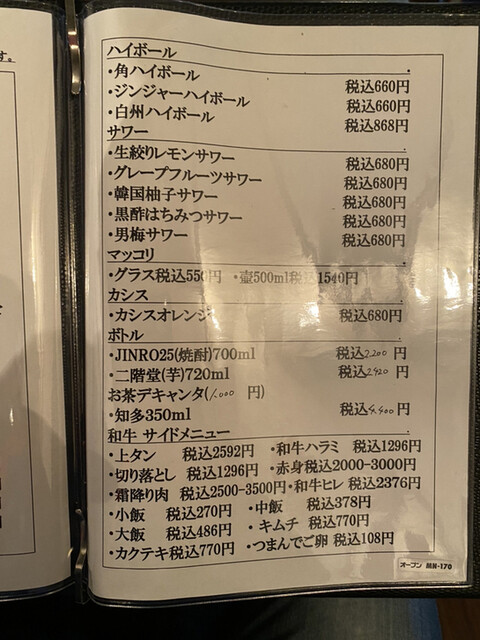 す。
ハイボール
・角ハイボール 税込660円
・ジンジャーハイボール 税込660円
・白州ハイボール 税込868円
サワー
・生絞りレモンサワー 税込680円
・グレープフルーツサワー 税込680円
・韓国柚子サワー 税込680円
・黒酢はちみつサワー 税込680円
・男梅サワー 税込680円
マッコリ
・グラス税込550円 ・壺500ml税込1540円
カシス
・カシスオレンジ 税込680円
ボトル
・JINRO25(焼酎)700ml 税込2,200円
・二階堂(芋)720ml 税込2,420円
お茶デキャンタ(1,000 円)
・知多350ml 税込4,400円
和牛 サイドメニュー
・上タン 税込2592円 ・和牛ハラミ 税込1296円
・切り落とし 税込1296円 ・赤身税込2000-3000円
・霜降り肉 税込2500-3500円・和牛ヒレ 税込2376円
・小飯 税込270円 ・中飯 税込378円
・大飯 税込486円 ・キムチ 税込770円
・カクテキ税込770円 ・つまんでご卵 税込108円
オープン MN-170